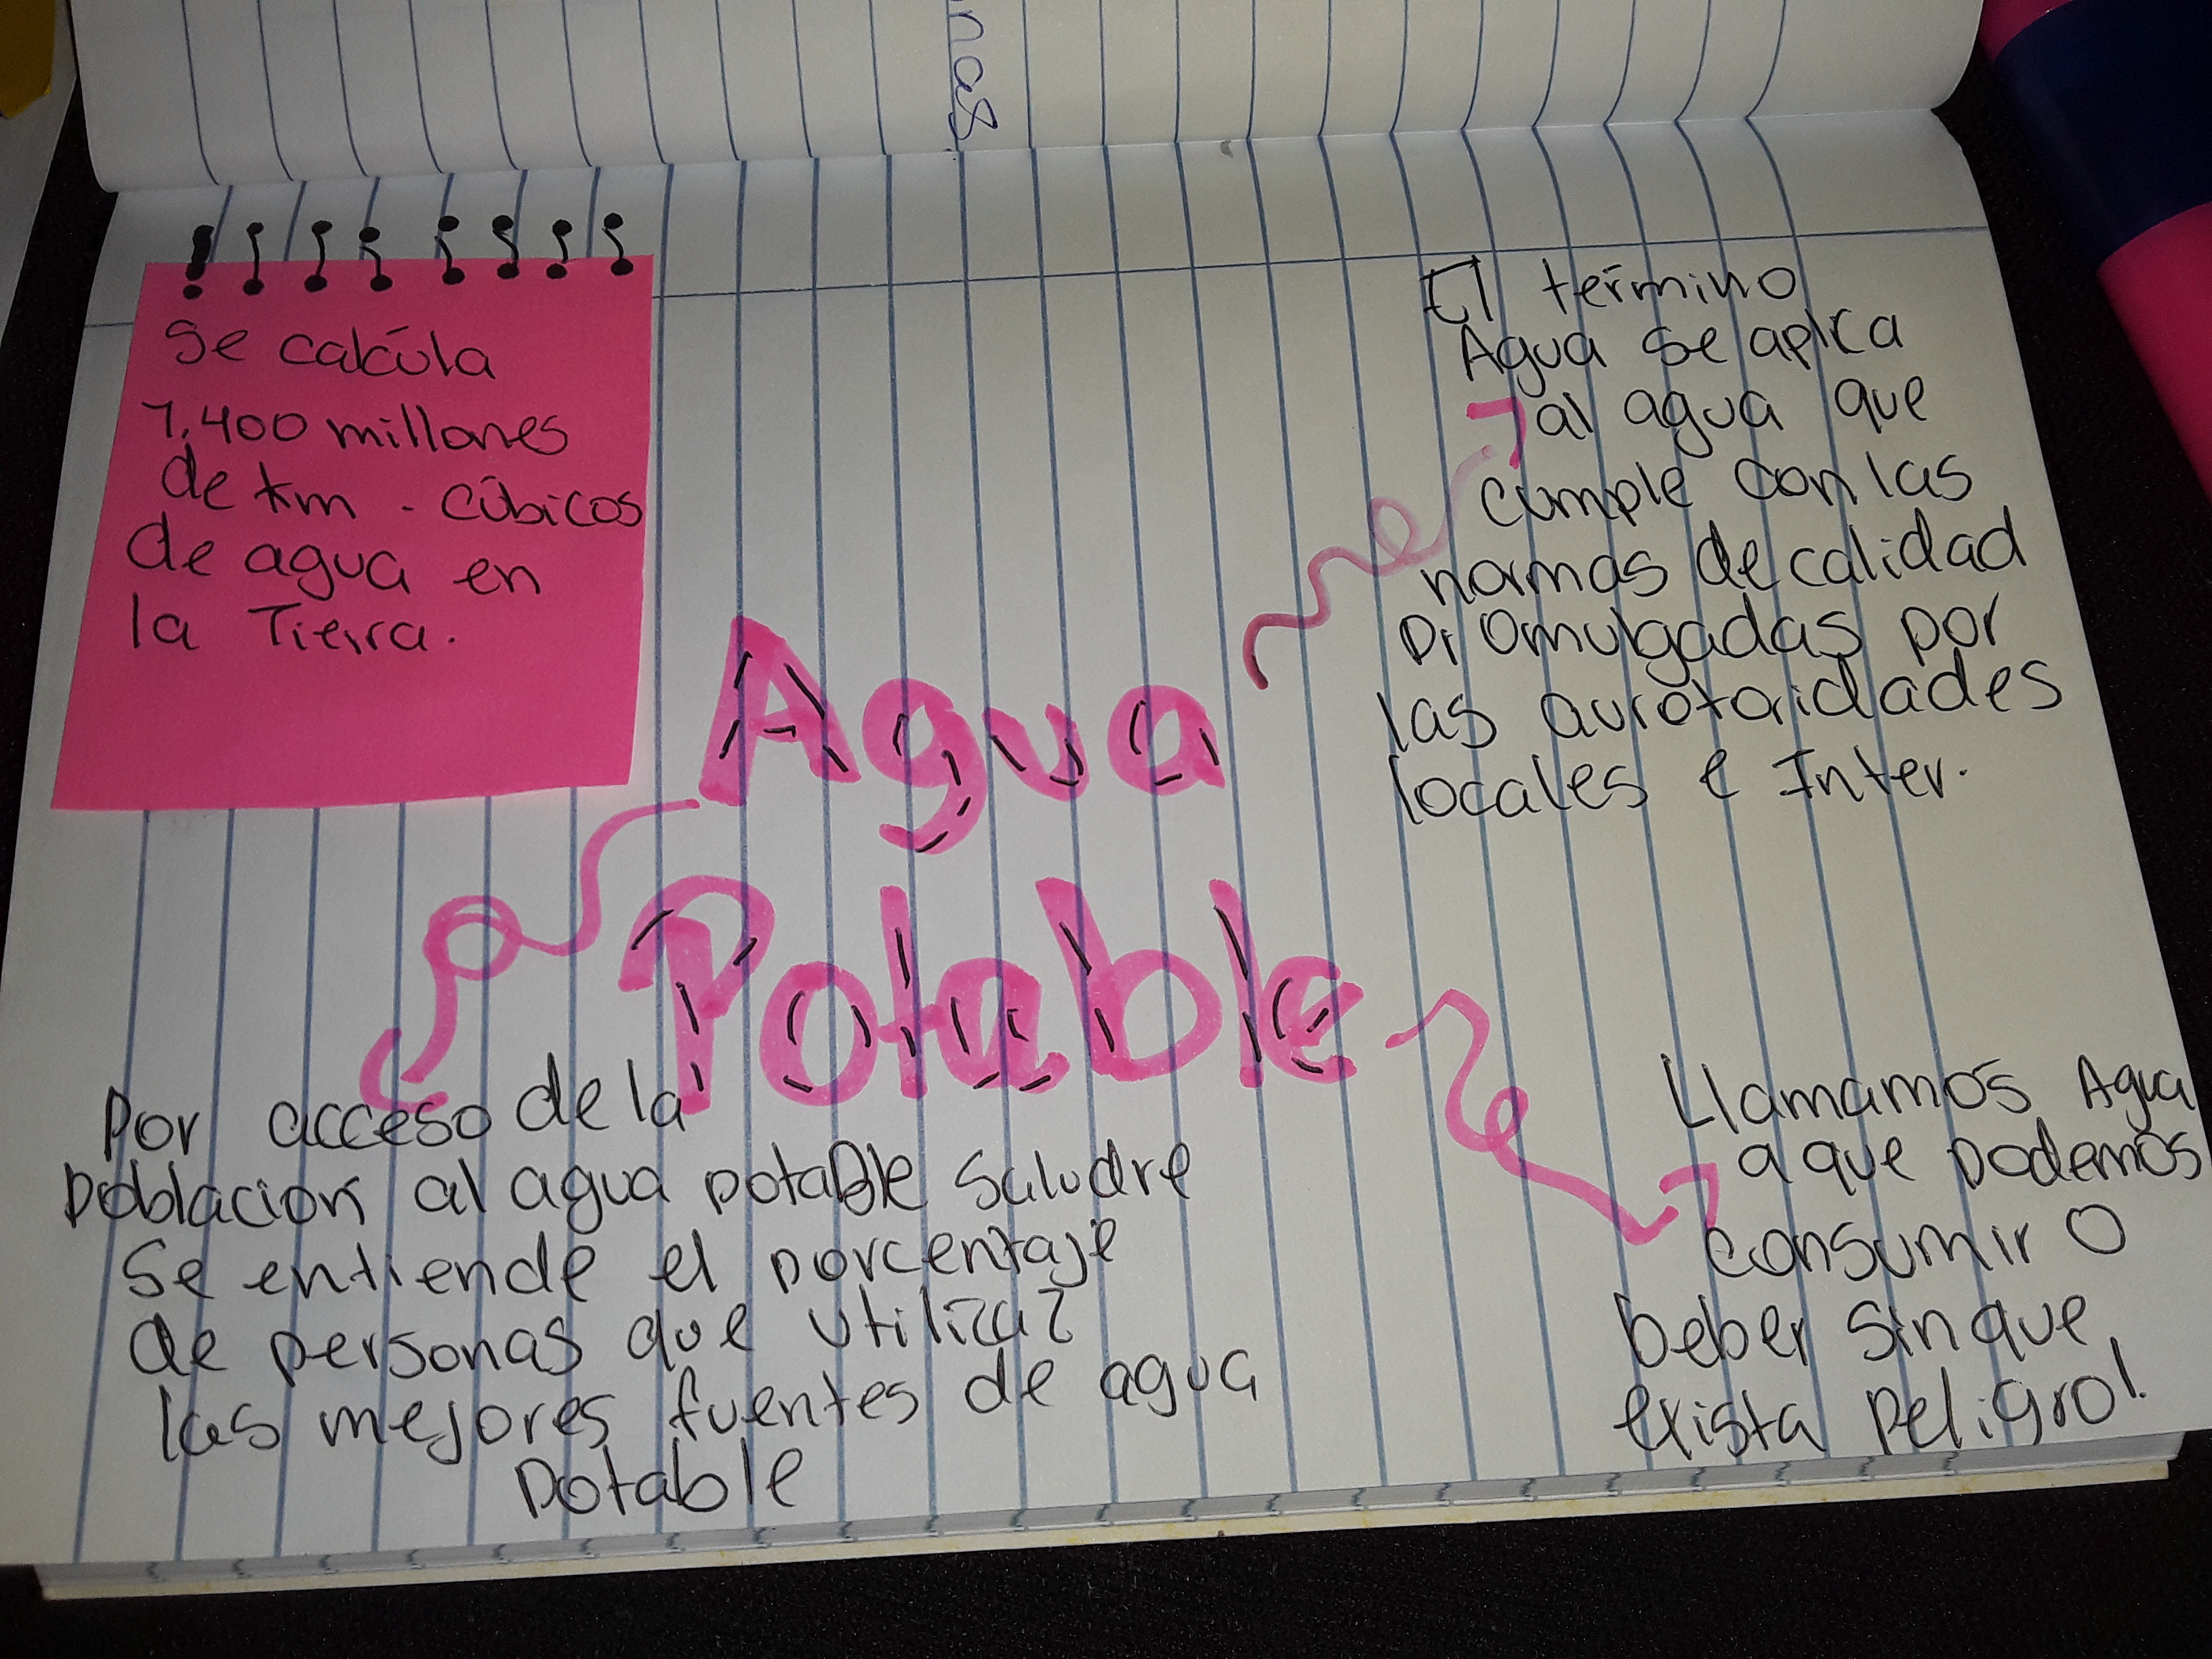 nas
Se calcúla
1,400 millones
de km - cúbicos
de agua en
la Tierra.
El término
Agua se aplica
al agua que
cumple con las
normas de calidad
Promulgadas por
las aurotoridades
locales e Inter.
Agua
Potable
Por acceso de la
Poblacion al agua potable Saludre
Se entiende el porcentaje
de personas que utiliza
las mejores fuentes de agua
Potable
Llamamos Agua
a que podemos
consumir O
beber sin que
exista peligro!